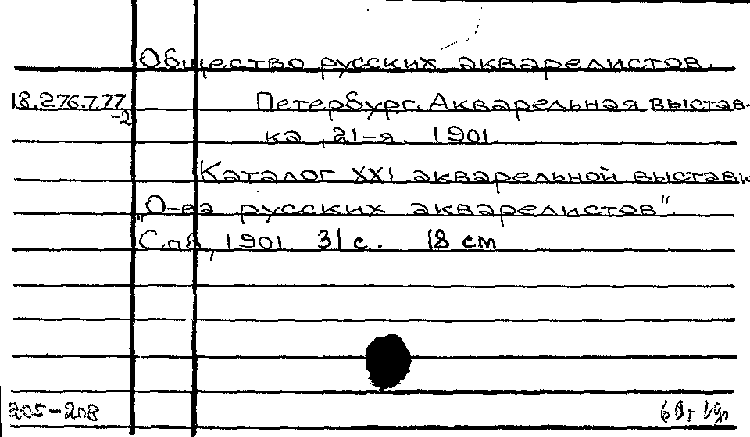 Общество русских акварелистов.
18.276.7.77
-2
Петербург. Акварельная выстав-
ка, 21-я. 1901
Каталог XXI акварельной выставки
"О-ва русских акварелистов".
С.пб, 1901. 31 с. 18 см
205-208